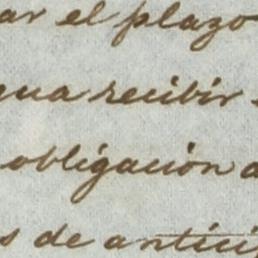 ar el plazo
gua recibir
obligacion a
s de antici